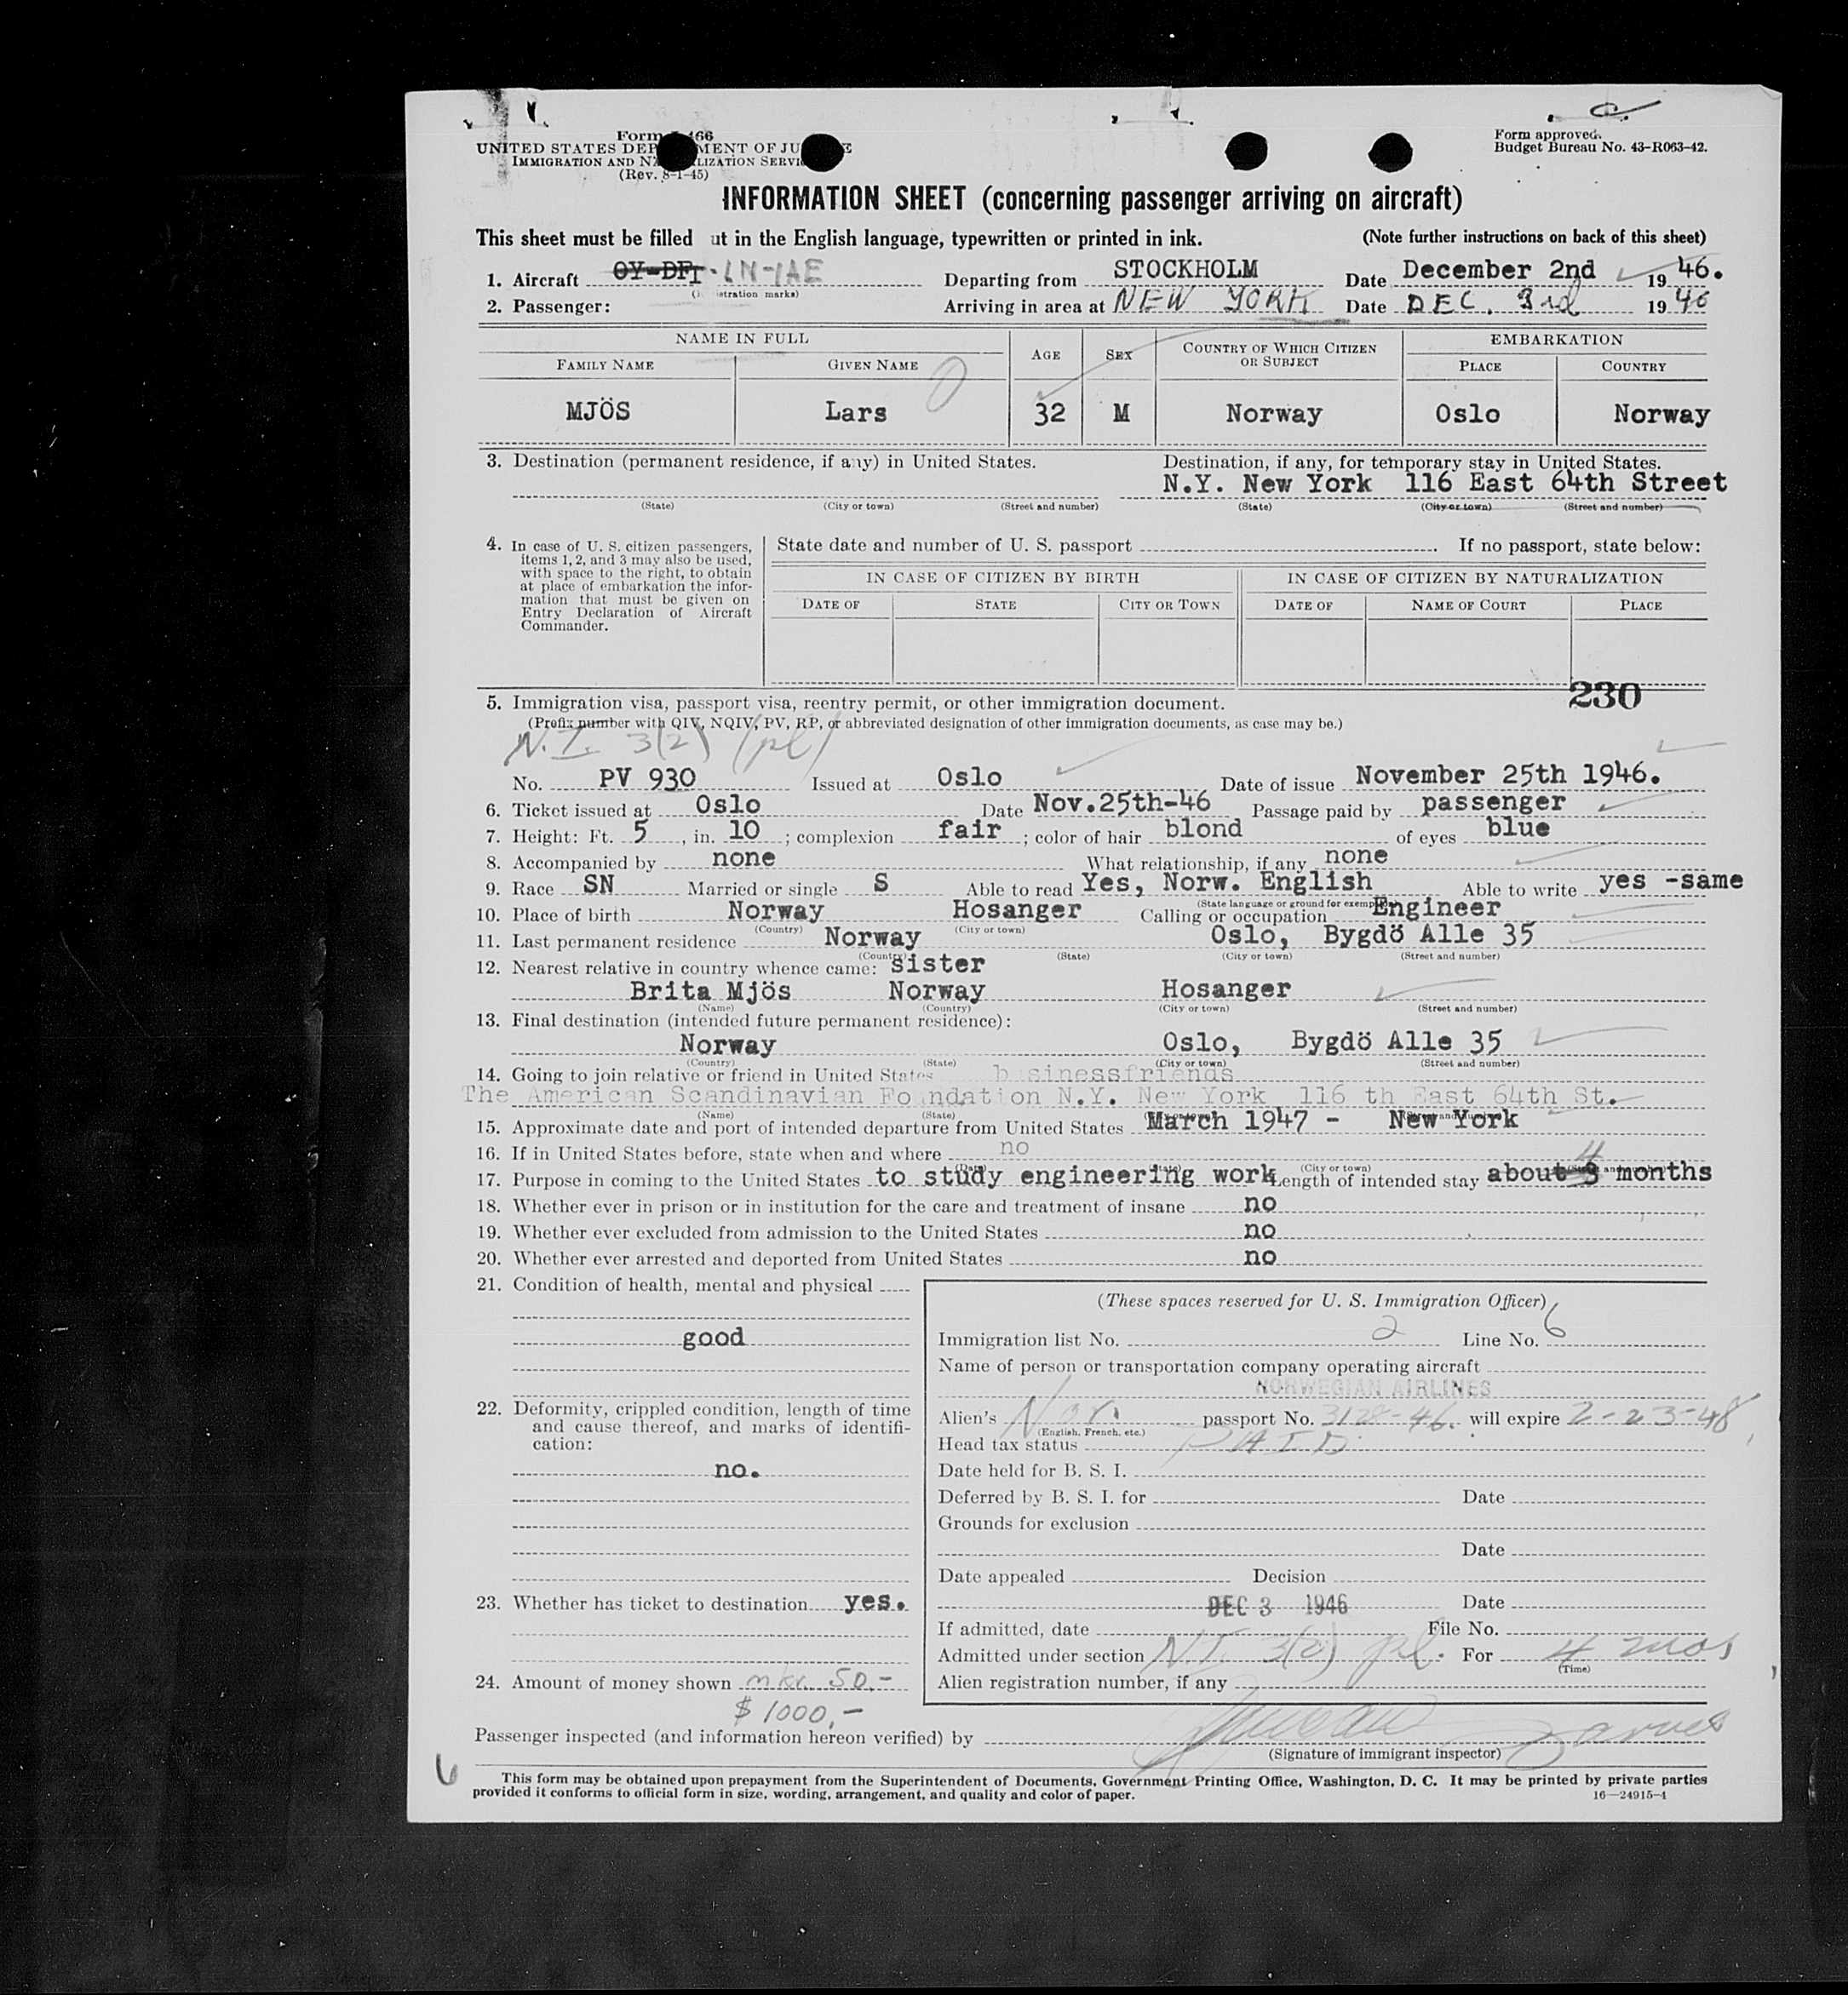 Form 466
UNITED STATES DEP MENT OF JU E
IMMIGRATION AND N LIZATION SERVI
(Rev. 8-1-45)
Form approved.
Budget Bureau No. 43-R063-42.
INFORMATION SHEET (concerning passenger arriving on aircraft)
This sheet must be filled ut in the English language, typewritten or printed in ink. (Note further instructions on back of this sheet)
1. Aircraft OY-DFI LN-IAE Departing from STOCKHOLM Date December 2nd 1946.
( istration marks)
2. Passenger: Arriving in area at NEW YORK Date DEC. 3rd 1946
NAME IN FULL AGE SEX COUNTRY OF WHICH CITIZEN OR SUBJECT EMBARKATION
FAMILY NAME GIVEN NAME PLACE COUNTRY
MJÖS Lars 32 M Norway Oslo Norway
3. Destination (permanent residence, if any) in United States. Destination, if any, for temporary stay in United States.
N.Y. New York 116 East 64th Street
(State) (City or town) (Street and number) (State) (City or town) (Street and number)
4. In case of U. S. citizen passengers, items 1, 2, and 3 may also be used, with space to the right, to obtain at place of embarkation the information that must be given on Entry Declaration of Aircraft Commander.
State date and number of U. S. passport . If no passport, state below:
IN CASE OF CITIZEN BY BIRTH IN CASE OF CITIZEN BY NATURALIZATION
DATE OF STATE CITY OR TOWN DATE OF NAME OF COURT PLACE
230
5. Immigration visa, passport visa, reentry permit, or other immigration document.
(Prefix number with QIV, NQIV, PV, RP, or abbreviated designation of other immigration documents, as case may be.)
N.I. 3(2) (pl)
No. PV 930 Issued at Oslo Date of issue November 25th 1946.
6. Ticket issued at Oslo Date Nov.25th-46 Passage paid by passenger
7. Height: Ft. 5, in. 10; complexion fair; color of hair blond of eyes blue
8. Accompanied by none What relationship, if any none
9. Race SN Married or single S Able to read Yes, Norw. English Able to write yes -same
(State language or ground for exemp
10. Place of birth Norway Hosanger Calling or occupation Engineer
(Country) (City or town)
11. Last permanent residence Norway Oslo, Bygdö Alle 35
(Country) (State) (City or town) (Street and number)
12. Nearest relative in country whence came: sister
Brita Mjös Norway Hosanger
(Name) (Country) (City or town) (Street and number)
13. Final destination (intended future permanent residence):
Norway Oslo, Bygdö Alle 35
(Country) (State) (City or town) (Street and number)
14. Going to join relative or friend in United States b sinessfriends
The American Scandinavian Fo ndation N.Y. New York 116 th East 64th St.
(Name) (State)
15. Approximate date and port of intended departure from United States March 1947 - New York
16. If in United States before, state when and where no
(City or town)
4
17. Purpose in coming to the United States to study engineering work Length of intended stay about 3 months
18. Whether ever in prison or in institution for the care and treatment of insane no
19. Whether ever excluded from admission to the United States no
20. Whether ever arrested and deported from United States no
21. Condition of health, mental and physical
good
22. Deformity, crippled condition, length of time and cause thereof, and marks of identification:
no.
23. Whether has ticket to destination yes.
24. Amount of money shown nkr. 50.-
$ 1000,-
(These spaces reserved for U. S. Immigration Officer)
Immigration list No. 2 Line No. 6
Name of person or transportation company operating aircraft
NORWEGIAN AIRLINES
Alien's Nor. passport No. 3128-46. will expire 2-23-48
(English, French, etc.)
Head tax status PAID
Date held for B. S. I.
Deferred by B. S. I. for Date
Grounds for exclusion
Date
Date appealed Decision
DEC 3 1946 Date
If admitted, date File No.
Admitted under section N.I. 3(2) pl. For 4 mos
(Time)
Alien registration number, if any
Passenger inspected (and information hereon verified) by
(Signature of immigrant inspector)
6
This form may be obtained upon prepayment from the Superintendent of Documents, Government Printing Office, Washington, D. C. It may be printed by private parties
provided it conforms to official form in size, wording, arrangement, and quality and color of paper. 16—24915-1